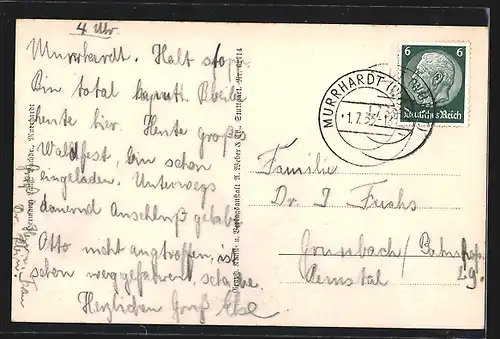 4 Uhr
Murrhardt. Halt
Bin total kaputt. Bleibe
heute hier. Heute groß
Waldfest, bin schon
eingeladen. Unterwegs
dauernd Anschluß gehabt.
Otto nicht angetroffen, ist
schon weggefahren, schade.
Herzlichen Gruß
Familie
Dr. J. Fuchs
Grunbach / Bahnhof
Remstal
MURRHARDT
1.7.
6 6
Deutsches Reich
A. Weber & Co., Stuttgart
Murrhardt